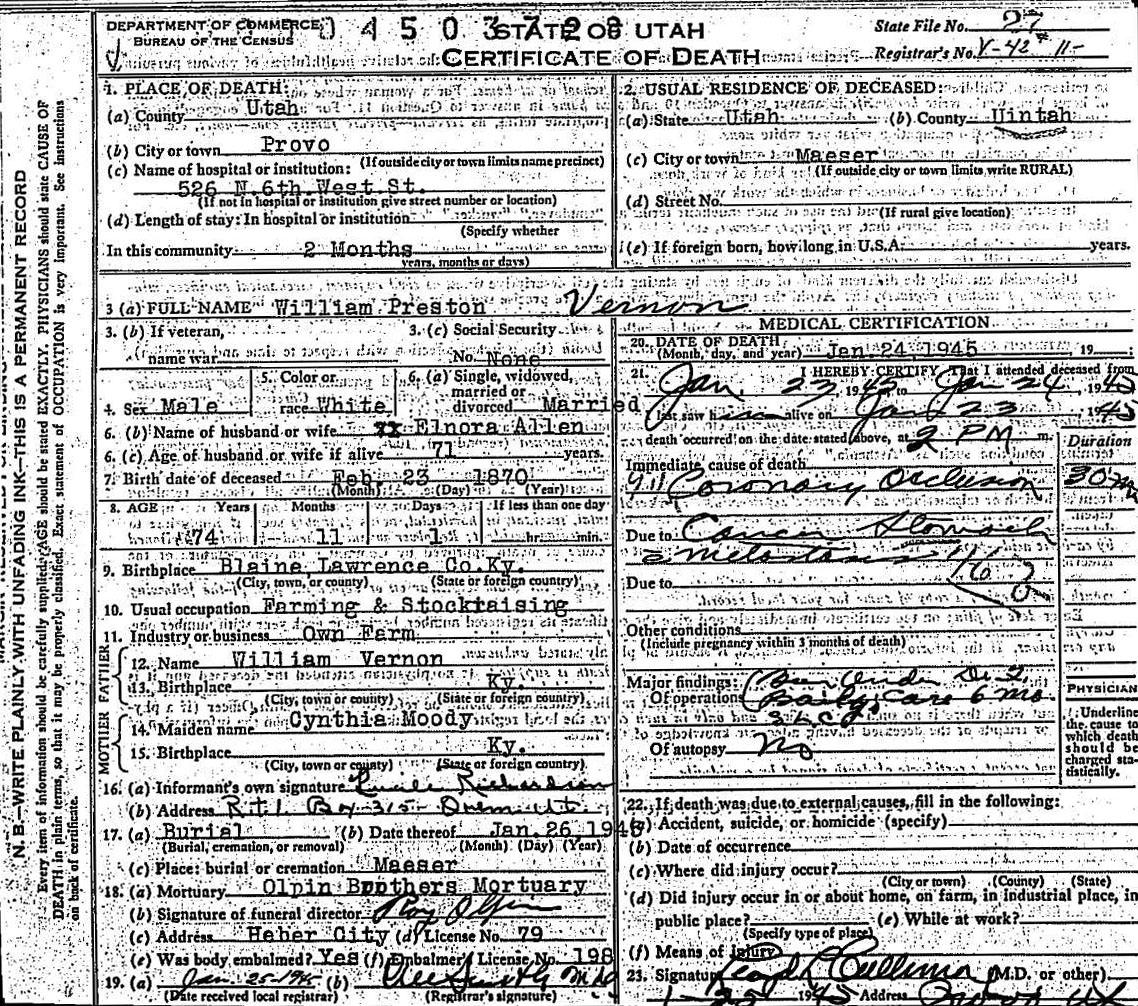 DEPARTMENT OF COMMERCE
BUREAU OF THE CENSUS
STATE OF UTAH
CERTIFICATE OF DEATH
State File No. 27
Registrar's No. V-42 # 11-
1. PLACE OF DEATH:
(a) County Utah
(b) City or town Provo
(If outside city or town limits name precinct)
(c) Name of hospital or institution:
526 N. 6th West St.
(If not in hospital or institution give street number or location)
(d) Length of stay: In hospital or institution
(Specify whether
In this community 2 Months
years, months or days)
2. USUAL RESIDENCE OF DECEASED:
(a) State Utah (b) County Uintah
(c) City or town Maeser
(If outside city or town limits write RURAL)
(d) Street No.
(If rural give location)
(e) If foreign born, how long in U.S.A. years.
3 (a) FULL NAME William Preston Vernon
3. (b) If veteran,
name war
3. (c) Social Security
No. None
4. Sex Male
5. Color or
race White
6. (a) Single, widowed,
married or
divorced Married
6. (b) Name of husband or wife Elnora Allen
6. (c) Age of husband or wife if alive 71 years.
7. Birth date of deceased Feb. 23 1870
(Month) (Day) (Year)
8. AGE Years Months Days If less than one day
74 11 1 hr. min.
9. Birthplace Blaine Lawrence Co. Ky.
(City, town, or county) (State or foreign country)
10. Usual occupation Farming & Stockraising
11. Industry or business Own Farm
FATHER
12. Name William Vernon
13. Birthplace Ky.
(City, town or county) (State or foreign country)
MOTHER
14. Maiden name Cynthia Moody
15. Birthplace Ky.
(City, town or county) (State or foreign country)
16. (a) Informant's own signature Lucile Richardson
(b) Address Rt. 1. Box 315 - Orem Ut.
17. (a) Burial (b) Date thereof Jan. 26, 1945
(Burial, cremation, or removal) (Month) (Day) (Year)
(c) Place: burial or cremation Maeser
18. (a) Mortuary Olpin Brothers Mortuary
(b) Signature of funeral director Roy Olpin
(c) Address Heber City (d) License No. 79
(e) Was body embalmed? Yes (f) Embalmer's License No. 198
19. (a) Jan 25-1945 (b)
(Date received local registrar) (Registrar's signature)
MEDICAL CERTIFICATION
20. DATE OF DEATH
(Month, day, and year) Jan. 24, 1945, 19
21. I HEREBY CERTIFY, That I attended deceased from
Jan. 23, 1945 to Jan 24, 1945
last saw him alive on Jan 23, 1945
death occurred on the date stated above, at 2 PM m.
Duration
Immediate cause of death
Coronary Occlusion 30 m
Due to Cancer Stomach
metastasis
Due to
Other conditions
(Include pregnancy within 3 months of death)
Major findings: Been Under Dr.
Of operations Care 6 Mo
S L C
Of autopsy No
PHYSICIAN
Underline
the cause to
which death
should be
charged sta-
tistically.
22. If death was due to external causes, fill in the following:
(a) Accident, suicide, or homicide (specify)
(b) Date of occurrence
(c) Where did injury occur?
(City or town) (County) (State)
(d) Did injury occur in or about home, on farm, in industrial place, in
public place? (e) While at work?
(Specify type of place)
(f) Means of injury
23. Signature Lloyd L Cullimore (M.D. or other)
1-25 1945 Address Provo Ut
N. B.—WRITE PLAINLY WITH UNFADING INK—THIS IS A PERMANENT RECORD
Every item of information should be carefully supplied. AGE should be stated EXACTLY. PHYSICIANS should state CAUSE OF
DEATH in plain terms, so that it may be properly classified. Exact statement of OCCUPATION is very important. See instructions
on back of certificate.